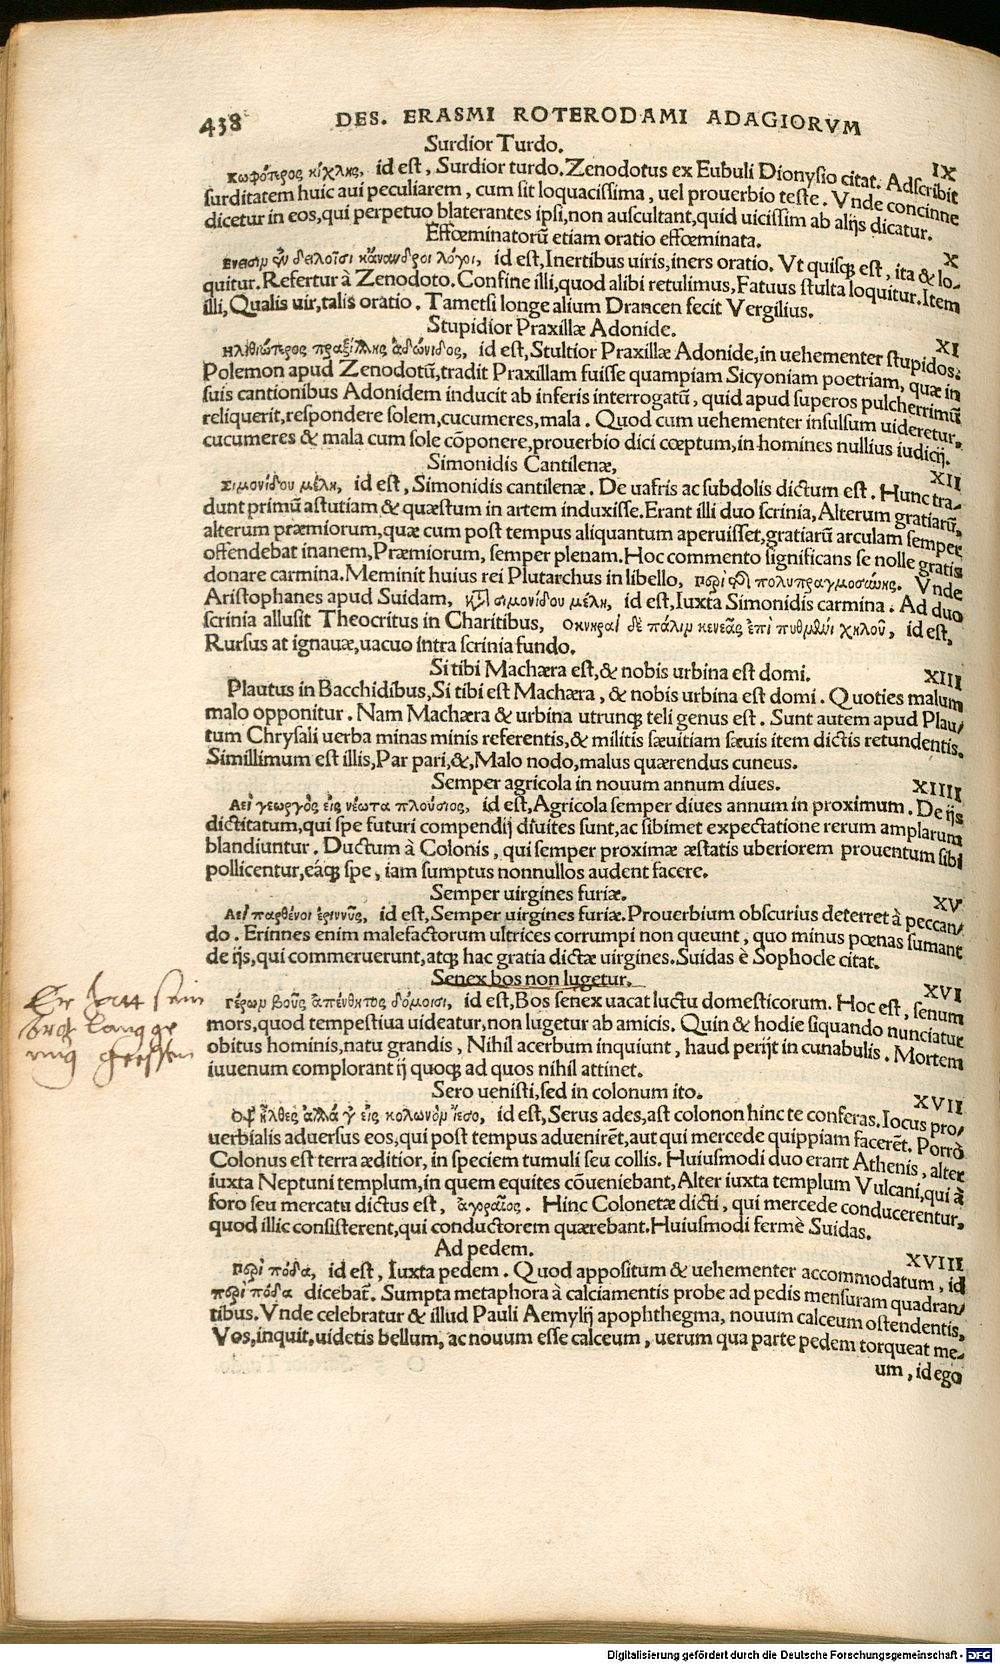 438 DES. ERASMI ROTERODAMI ADAGIORVM
Surdior Turdo. IX
Κωφότερος κίχλης, id est, Surdior turdo. Zenodotus ex Eubuli Dionysio citat. Adscribit
surditatem huic aui peculiarem, cum sit loquacissima, uel prouerbio teste. Vnde concinne
dicetur in eos, qui perpetuo blaterantes ipsi, non auscultant, quid uicissim ab alijs dicatur.
Effœminatorū etiam oratio effœminata. X
id est, Inertibus uiris, iners oratio. Vt quisq; est, ita & lo-
quitur. Refertur à Zenodoto. Confine illi, quod alibi retulimus, Fatuus stulta loquitur. Item
illi, Qualis uir, talis oratio. Tametsi longe alium Drancen fecit Vergilius.
Stupidior Praxillæ Adonide. XI
Ηλιθιώτερος πραξίλλης ἀδώνιδος, id est, Stultior Praxillæ Adonide, in uehementer stupidos.
Polemon apud Zenodotū, tradit Praxillam fuisse quampiam Sicyoniam poetriam, quæ in
suis cantionibus Adonidem inducit ab inferis interrogatū, quid apud superos pulcherrimū
reliquerit, respondere solem, cucumeres, mala. Quod cum uehementer insulsum uideretur,
cucumeres & mala cum sole cōponere, prouerbio dici cœptum, in homines nullius iudicij.
Simonidis Cantilenæ, XII
Σιμονίδου μέλη, id est, Simonidis cantilenæ. De uafris ac subdolis dictum est. Hunc tra-
dunt primū astutiam & quæstum in artem induxisse. Erant illi duo scrinia, Alterum gratiarū,
alterum præmiorum, quæ cum post tempus aliquantum aperuisset, gratiarū arculam semper
offendebat inanem, Præmiorum, semper plenam. Hoc commento significans se nolle gratis
donare carmina. Meminit huius rei Plutarchus in libello, περὶ τῆς πολυπραγμοσύνης. Vnde
Aristophanes apud Suidam, κατὰ σιμονίδου μέλη, id est, Iuxta Simonidis carmina. Ad duo
scrinia allusit Theocritus in Charitibus, Οκνηραὶ δὲ πάλιν κενεᾶς ἐπὶ πυθμένι χηλοῦ, id est,
Rursus at ignauæ, uacuo intra scrinia fundo.
Si tibi Machæra est, & nobis urbina est domi. XIII
Plautus in Bacchidibus, Si tibi est Machæra, & nobis urbina est domi. Quoties malum
malo opponitur. Nam Machæra & urbina utrunq; teli genus est. Sunt autem apud Plau/
tum Chrysali uerba minas minis referentis, & militis sæuitiam sæuis item dictis retundentis.
Simillimum est illis, Par pari, &, Malo nodo, malus quærendus cuneus.
Semper agricola in nouum annum diues. XIIII
Αεὶ γεωργὸς εἰς νέωτα πλούσιος, id est, Agricola semper diues annum in proximum. De ijs
dictitatum, qui spe futuri compendij diuites sunt, ac sibimet expectatione rerum amplarum
blandiuntur. Ductum à Colonis, qui semper proximæ æstatis uberiorem prouentum sibi
pollicentur, eáq; spe, iam sumptus nonnullos audent facere.
Semper uirgines furiæ. XV
Αεὶ παρθένοι ἐριννῦς, id est, Semper uirgines furiæ. Prouerbium obscurius deterret à peccan/
do. Erinnes enim malefactorum ultrices corrumpi non queunt, quo minus pœnas sumant
de ijs, qui commeruerunt, atq; hac gratia dictæ uirgines. Suidas è Sophocle citat.
Senex bos non lugetur. XVI
Γέρων βοῦς ἀπένθητος δόμοισι, id est, Bos senex uacat luctu domesticorum. Hoc est, senum
mors, quod tempestiua uideatur, non lugetur ab amicis. Quin & hodie siquando nunciatur
obitus hominis, natu grandis, Nihil acerbum inquiunt, haud perijt in cunabulis. Mortem
iuuenum complorant ij quoq; ad quos nihil attinet.
Sero uenisti, sed in colonum ito. XVII
Οψ' ἦλθες ἀλλά γ' εἰς κολωνὸν ἵεσο, id est, Serus ades, ast colonon hinc te conferas. Iocus pro/
uerbialis aduersus eos, qui post tempus aduenirēt, aut qui mercede quippiam facerēt. Porrò
Colonus est terra æditior, in speciem tumuli seu collis. Huiusmodi duo erant Athenis, alter
iuxta Neptuni templum, in quem equites cōueniebant, Alter iuxta templum Vulcani, qui à
foro seu mercatu dictus est, ἀγοραῖος. Hinc Colonetæ dicti, qui mercede conducerentur,
quod illic consisterent, qui conductorem quærebant. Huiusmodi fermè Suidas.
Ad pedem. XVIII
Περὶ πόδα, id est, Iuxta pedem. Quod appositum & uehementer accommodatum, id
περὶ πόδα dicebāt. Sumpta metaphora à calciamentis probe ad pedis mensuram quadran/
tibus. Vnde celebratur & illud Pauli Aemylij apophthegma, nouum calceum ostendentis,
Vos, inquit, uidetis bellum, ac nouum esse calceum, uerum qua parte pedem torqueat me-
um, id ego
Er hatt sein
lang
Digitalisierung gefördert durch die Deutsche Forschungsgemeinschaft - DFG